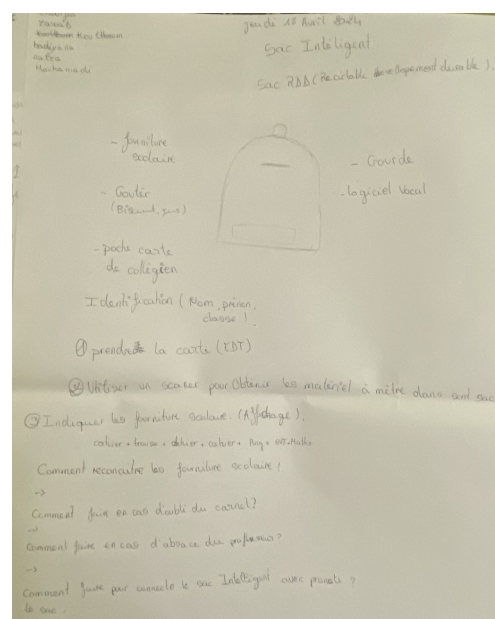 jeudi 18 Avril 2024
Sac Inteligent
Sac RDD (Recictable developement durable).
- fourniture
scolaire
- Gourde
- Goutér
(Biscuit, jus)
- logiciel Vocal
- poche carte
de collégien
Identification (Nom, prénen,
classe).
① prendre la carte (EDT)
② Utiliser un scaner pour Obtenir les matériel à mètre dans sont sac
③ Indiquer les fourniture scolaire. (Affichage).
cahier + trousse + cahier + cahier +
Comment reconaitre les fourniture scolaire !
->
Comment faire en cas d'oubli du carnet?
->
Comment faire en cas d'absace du professeur?
->
Comment faire pour connecte le sac Intelligent avec pronote ?
le sac.